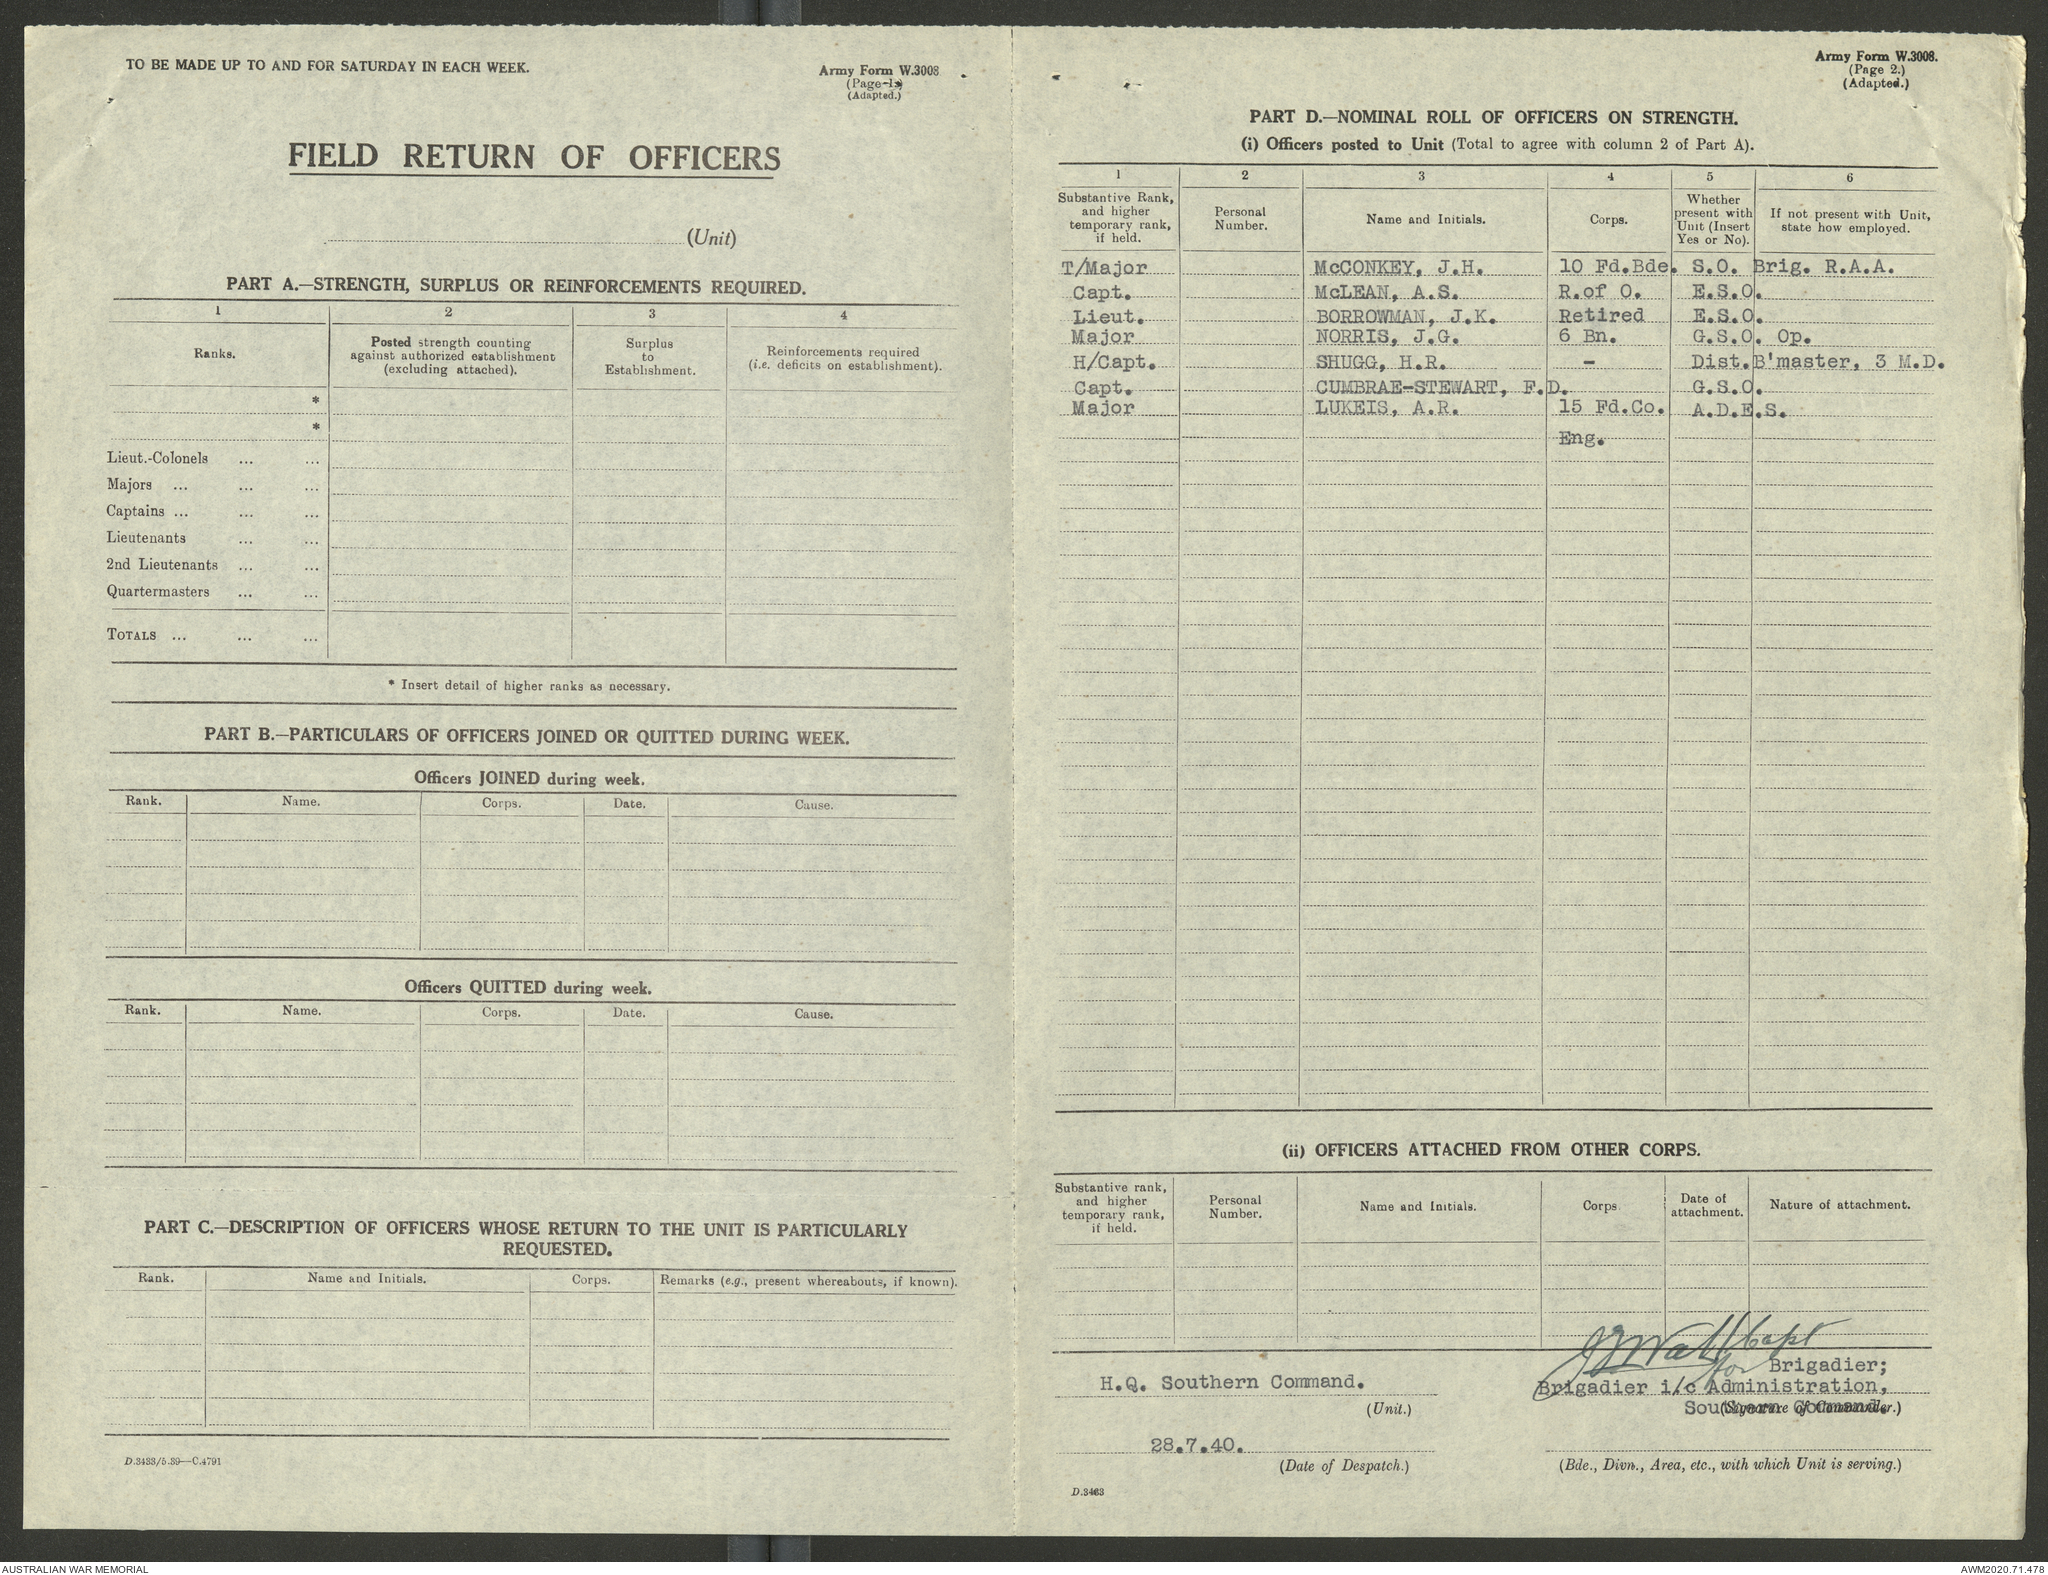 TO BE MADE UP TO AND FOR SATURDAY IN EACH WEEK.
Army Form W.3008
(Page 1.)
(Adapted.)
FIELD RETURN OF OFFICERS
(Unit)
PART A.—STRENGTH, SURPLUS OR REINFORCEMENTS REQUIRED.
1 2 3 4
Ranks.
Posted strength counting
against authorized establishment
(excluding attached).
Surplus
to
Establishment.
Reinforcements required
(i.e. deficits on establishment).
*
*
Lieut.-Colonels ... ...
Majors ... ... ...
Captains ... ... ...
Lieutenants ... ...
2nd Lieutenants ... ...
Quartermasters ... ...
TOTALS ... ... ...
* Insert detail of higher ranks as necessary.
PART B.—PARTICULARS OF OFFICERS JOINED OR QUITTED DURING WEEK.
Officers JOINED during week.
Rank. Name. Corps. Date. Cause.
Officers QUITTED during week.
Rank. Name. Corps. Date. Cause.
PART C.—DESCRIPTION OF OFFICERS WHOSE RETURN TO THE UNIT IS PARTICULARLY
REQUESTED.
Rank. Name and Initials. Corps. Remarks (e.g., present whereabouts, if known).
D.3433/5.39—C.4791
Army Form W.3008.
(Page 2.)
(Adapted.)
PART D.—NOMINAL ROLL OF OFFICERS ON STRENGTH.
(i) Officers posted to Unit (Total to agree with column 2 of Part A).
1 2 3 4 5 6
Substantive Rank,
and higher
temporary rank,
if held.
Personal
Number.
Name and Initials.
Corps.
Whether
present with
Unit (Insert
Yes or No).
If not present with Unit,
state how employed.
T/Major McCONKEY, J.H. 10 Fd.Bde. S.O. Brig. R.A.A.
Capt. McLEAN, A.S. R.of O. E.S.O.
Lieut. BORROWMAN, J.K. Retired E.S.O.
Major NORRIS, J.G. 6 Bn. G.S.O. Op.
H/Capt. SHUGG, H.R. - Dist.B'master, 3 M.D.
Capt. CUMBRAE-STEWART, F.D. G.S.O.
Major LUKEIS, A.R. 15 Fd.Co. A.D.E.S.
Eng.
(ii) OFFICERS ATTACHED FROM OTHER CORPS.
Substantive rank,
and higher
temporary rank,
if held.
Personal
Number.
Name and Initials.
Corps.
Date of
attachment.
Nature of attachment.
Capt
for Brigadier;
H.Q. Southern Command.
Brigadier i/c Administration,
(Unit.)
Southern Command.
(Signature of Commander.)
28.7.40.
(Date of Despatch.)
(Bde., Divn., Area, etc., with which Unit is serving.)
D.3433
AUSTRALIAN WAR MEMORIAL
AWM2020.71.478